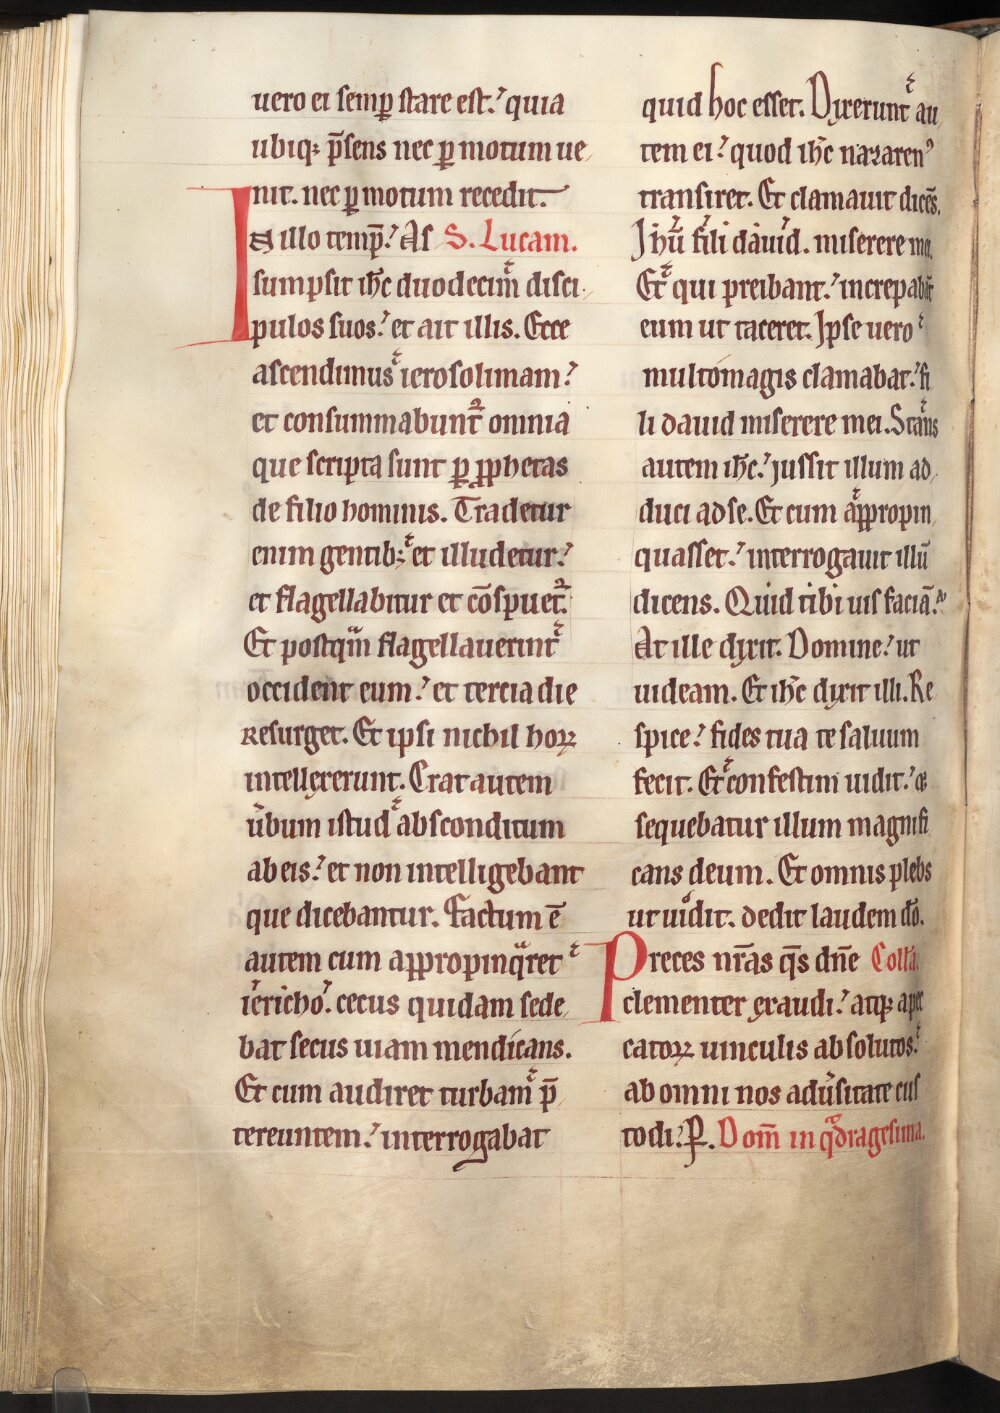 uero ei semꝑ stare est. quia
ubiqꝫ p̄sens nec ꝑ motum ue
nit. nec ꝑ motum recedit.
In illo temp̄. As S. Lucam.
sumpsit ih̄c duodecim̄ disci
pulos suos. et ait illis. Ecce
ascendimus ierosolimam.
et consummabunt᷑ omnia
que scripta sunt ꝑ ꝓphetas
de filio hominis. Tradetur
enim gentibꝫ et illudetur.
et flagellabitur et cōspuet᷑.
Et postqͣm flagellauerint
occident eum. et tercia die
resurget. Et ipsi nichil hoꝝ
intellexerunt. Erat autem
u̾bum istud absconditum
ab eis. et non intelligebant
que dicebantur. Factum ē
autem cum appropinqͣret
iericho. cecus quidam sede
bat secus uiam mendicans.
Et cum audiret turbam p̄
tereuntem. interrogabat
quid hoc esset. Dixerunt au
tem ei. quod ih̄c nazarenꝰ
transiret. Et clamauit dicēs.
Ihū fili dauid. miserere mei.
Et qui preibant. increpabāt
eum ut taceret. Ipse uero
multomagis clamabat. fi
li dauid miserere mei. Stans
autem ih̄c. iussit illum ad
duci ad se. Et cum appropin
quasset. interrogauit illū
dicens. Quid tibi uis faciā.
At ille dixit. Domine. ut
uideam. Et ih̄c dixit illi. Re
spice. fides tua te saluum
fecit. Et confestim uidit. &
sequebatur illum magnifi
cans deum. Et omnis plebs
ut uidit. dedit laudem dō.
Preces nr̄as qs̄ dn̄e Coll̄a.
clementer exaudi. atqꝫ a pec
catoꝝ uinculis absolutos.
ab omni nos adu̾sitate cus
todi. P. Dom̄ in qͣdragesima.